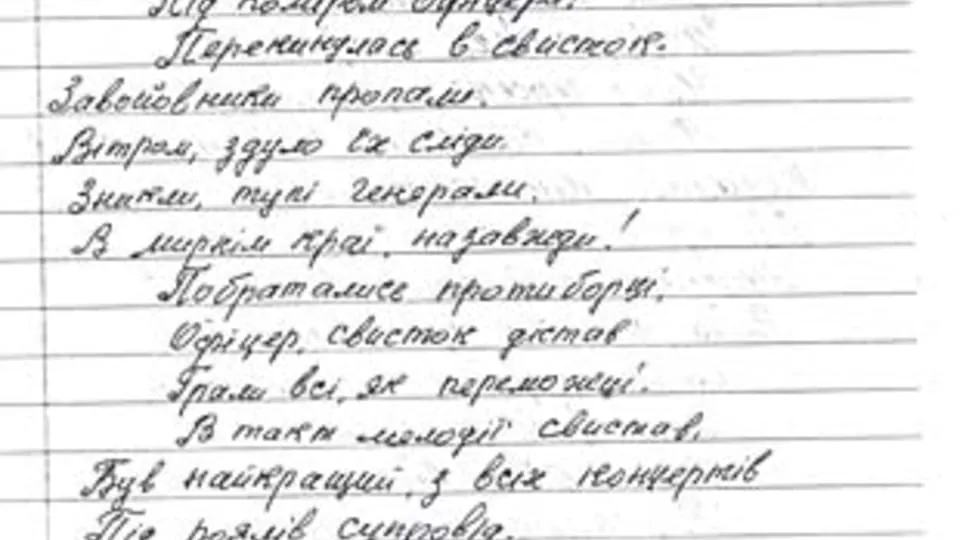 Під номіром офіцера.
Перекинулась в свисток.
Завойовники пропали.
Вітром, здуло їх сліди.
Зникли, тупі генерали.
В мирнім краї, назавжди!
Побратались противборці.
Офіцер, свисток дістав
Грали всі, як переможці!
В такт мелодії свистав.
Був найкращий, з всіх концертів
Під роялів супровід.